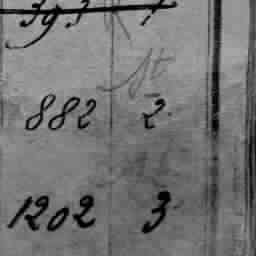 393 1
882 2
1202 3